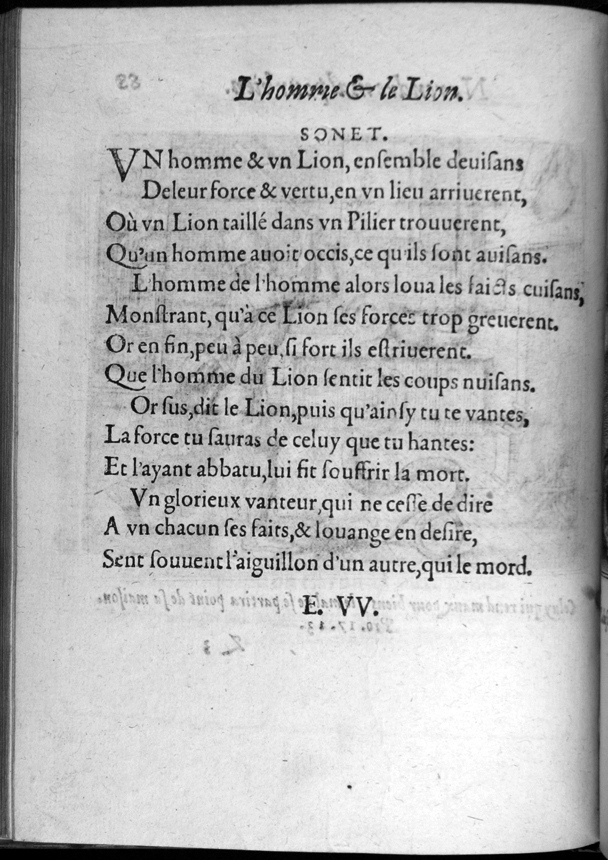 23
L'homme & le Lion.
SONET.
VN homme & vn Lion, enſemble deuiſans
Deleur force & vertu, en vn lieu arriuerent,
Où vn Lion taillé dans vn Pilier trouuerent,
Qu'un homme auoit occis, ce qu'ils ſont auiſans.
L'homme de l'homme alors loua les faicts cuiſans,
Monſtrant, qu'à ce Lion ſes forces trop greuerent.
Or en fin, peu à peu, ſi fort ils eſtriuerent.
Que l'homme du Lion ſentit les coups nuiſans.
Or ſus, dit le Lion, puis qu'ainſy tu te vantes,
La force tu ſauras de celuy que tu hantes:
Et l'ayant abbatu, lui fit ſouffrir la mort.
Vn glorieux vanteur, qui ne ceſſe de dire
A vn chacun ſes faits, & louange en deſire,
Sent ſouuent l'aiguillon d'un autre, qui le mord.
E. VV.